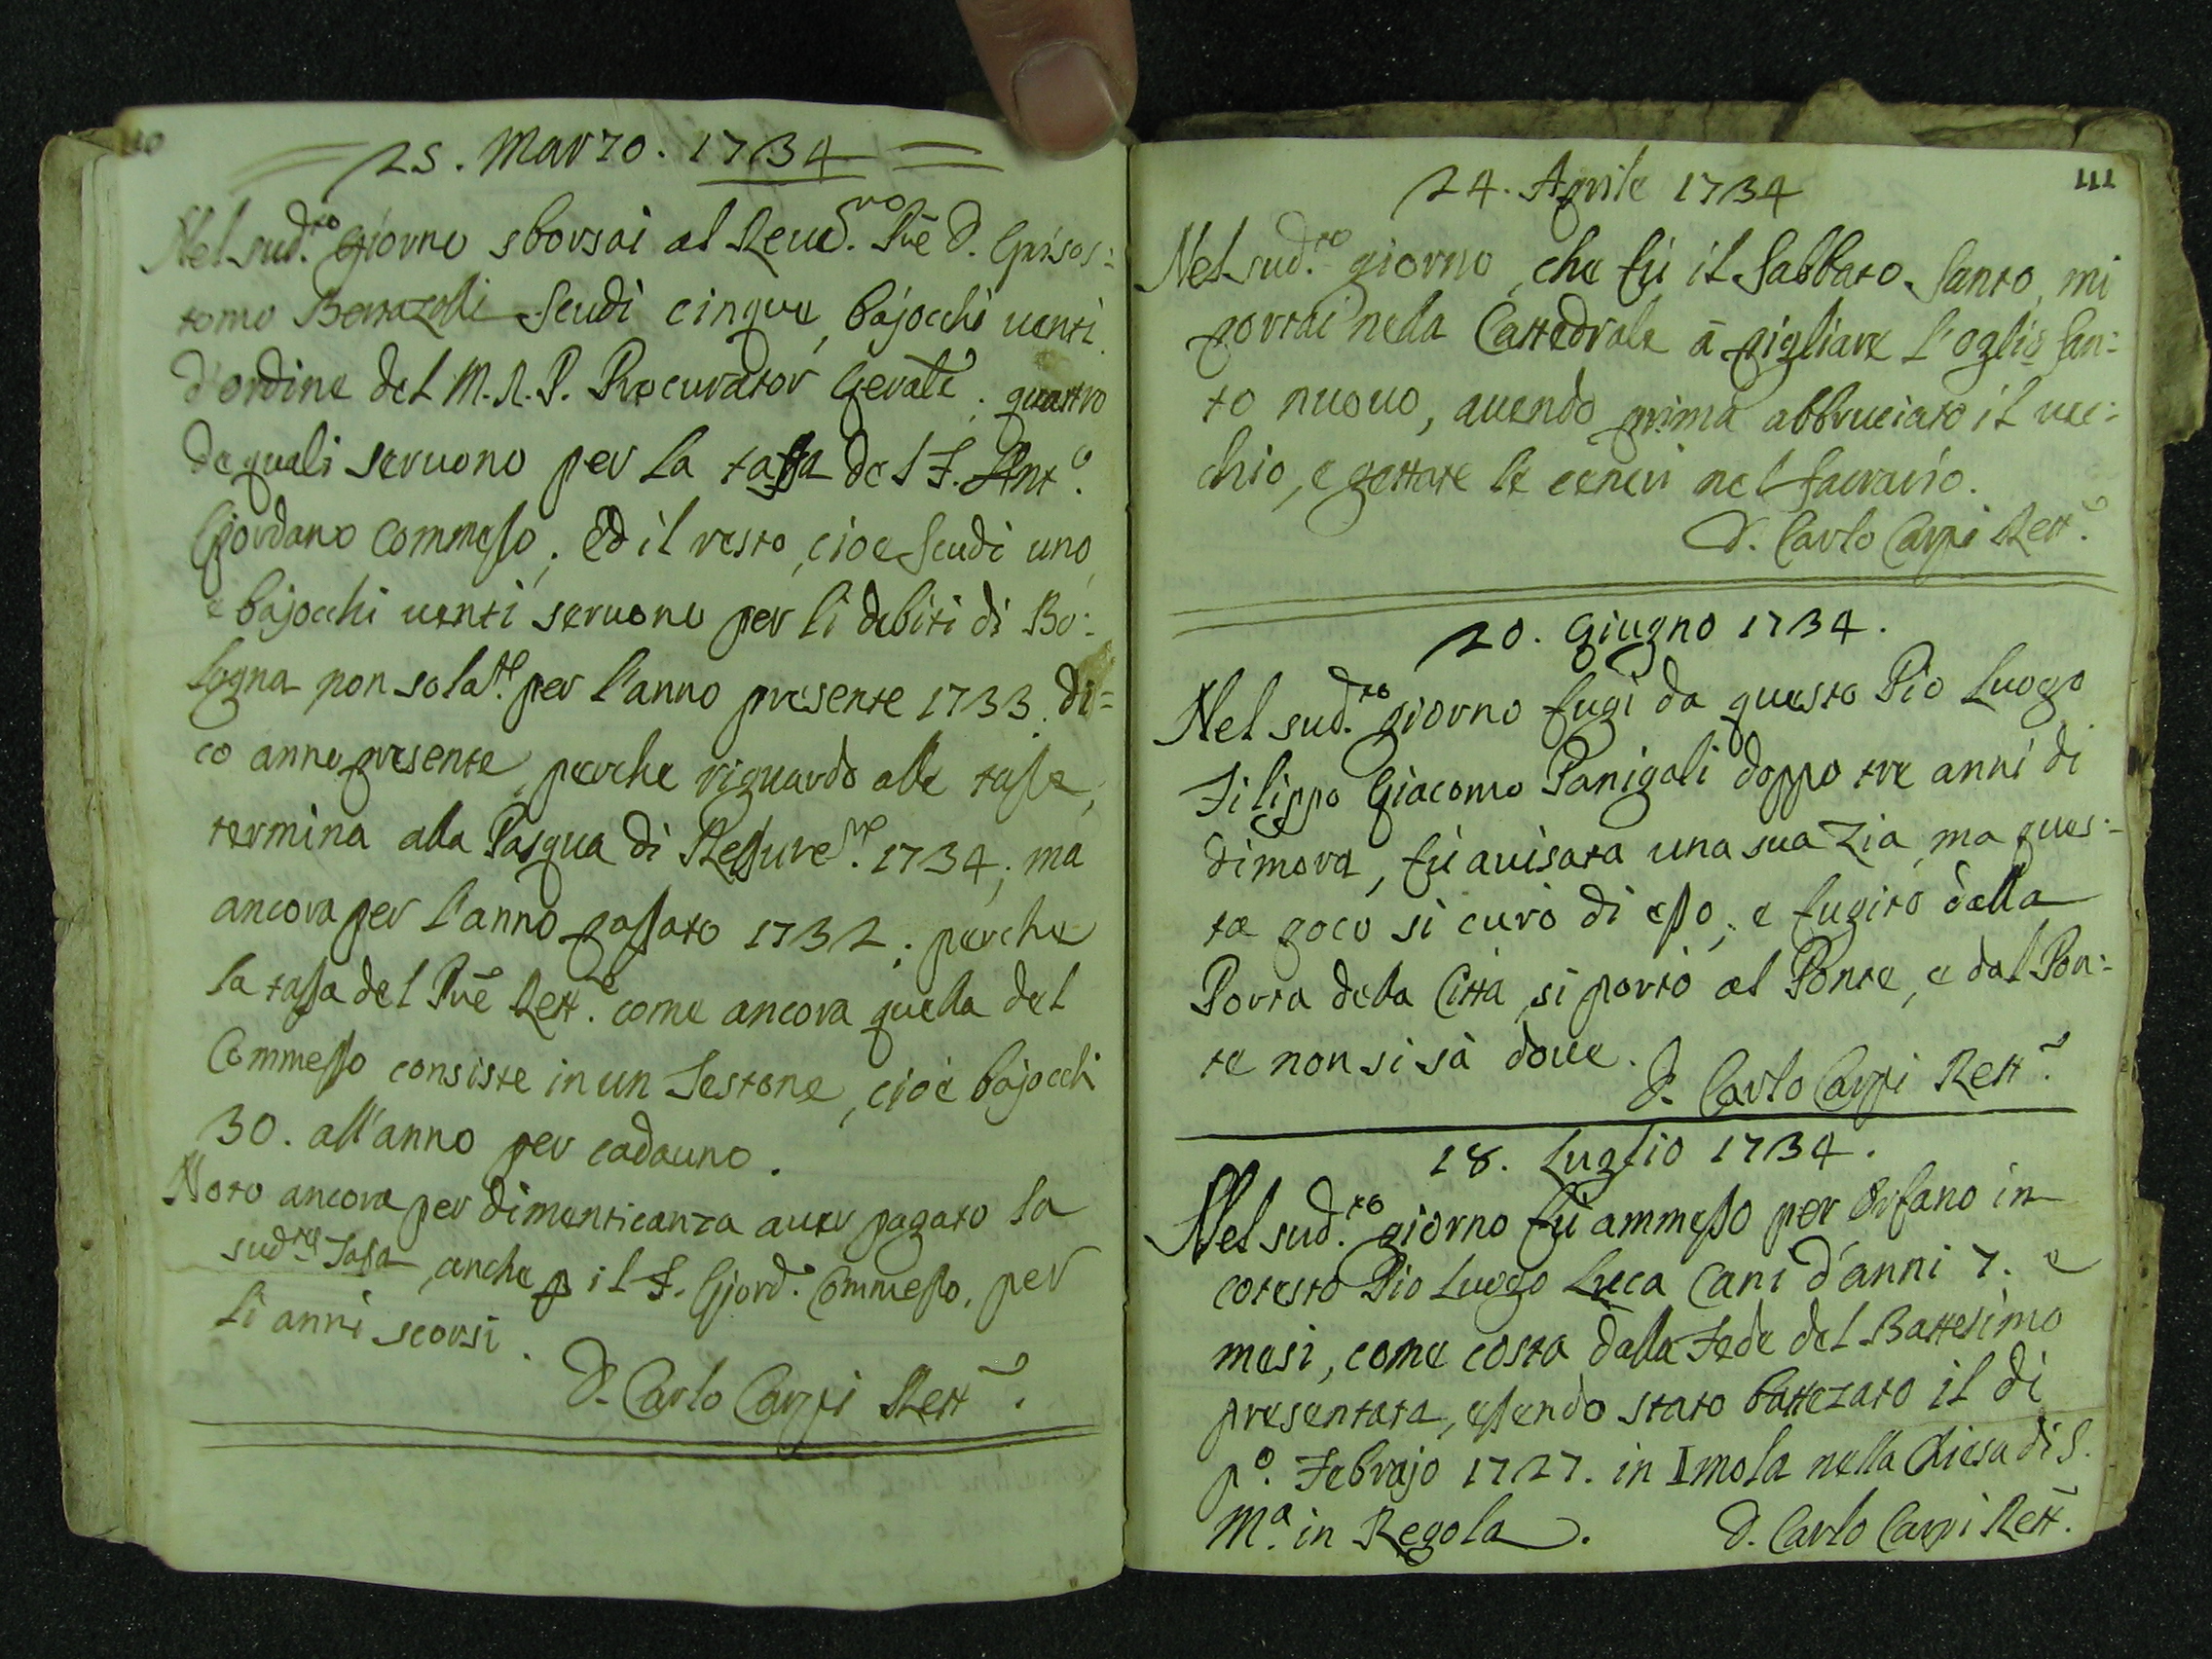 110
25. Marzo. 1734
Nel sud.to giorno sborsai al Reud.mo Pre D. Grisos:
tomo Bertazzoli Scudi cinque, bajocchi uenti
d'ordine del M. R. P. Procurator Gerale; quattro
de quali seruono per la tassa del F. Ant.o
Gjordano Commesso; Ed il resto, cioe Scudi uno,
e bajocchi uenti seruono per li debiti di Bo:
logna non sola.te per l'anno presente 1733. di=
co anno presente, perche riguardo alle tasse,
termina alla Pasqua di Resure.ne 1734; ma
ancora per l'anno passato 1732; perche
la tassa del Pre Rett.e come ancora quella del
Commesso consiste in un Testone, cioè bajocchi
30. all'anno per cadauno.
Noto ancora per dimenticanza auer pagato la
sud.ta Tassa anche p il F. Gjord.o Commesso, per
li anni scorsi.
D. Carlo Carpi Rett.e
111
24. Aprile 1734
Nel sud.to giorno, che fù il Sabbato Santo, mi
portai nella Cattedrale à pigliare l'oglio San:
to nuouo, auendo prima abbruciato il uec:
chio, e gettate le ceneri nel Sacrario.
D. Carlo Carpi Rett.e
20. Giugno 1734.
Nel sud.to giorno fugi da questo Pio Luogo
Filippo Giacomo Panigali doppo tre anni di
dimora, fù auisata una sua Zia, ma ques:
ta poco si curò di esso; e fugito dalla
Porta della Città, si portò al Ponte, e dal Pon:
te non si sà doue.
D. Carlo Carpi Rett.e
18. Luglio 1734.
Nel sud.to giorno fù ammesso per Orfano in
cotesto Pio Luogo Luca Cani d'anni 7. e
mesi, come costa dalla Fede del Battesimo
presentata, essendo stato battezato il dì
p.o Febrajo 1727. in Imola nella Chiesa di S.
M.a in Regola.
D. Carlo Carpi Rett.